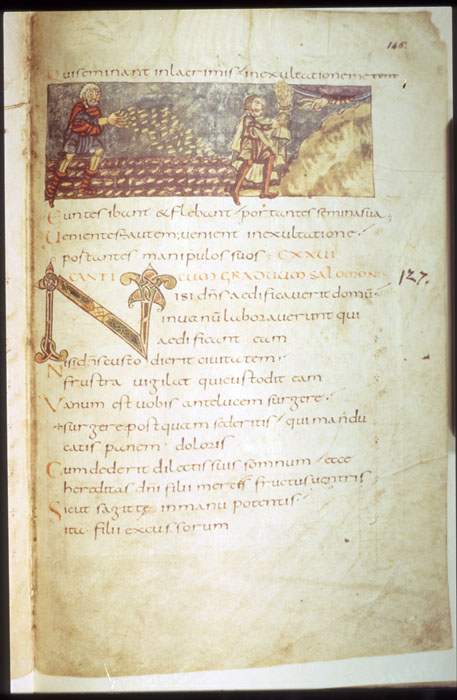 146
Qui seminant in lacrimis in exultatione metent
Euntes ibant & flebant portantes semina sua;
Uenientes autem; uenient in exultatione
portantes manipulos suos; CXXUI
CANTICUM GRADUUM SALOMON
127.
Nisi dñs aedificauerit domũ
inuanũ laborauerunt qui
aedificant eam
Nisi dñs custodierit ciuitatem
frustra uigilat qui custodit eam
Vanum est uobis antelucem surgere
surgere postquam sederitis qui mandu
catis panem doloris
Cum dederit dilectis suis somnum ecce
hereditas dñi filii merces fructus uentris
Sicut sagitte in manu potentis
ita filii excussorum